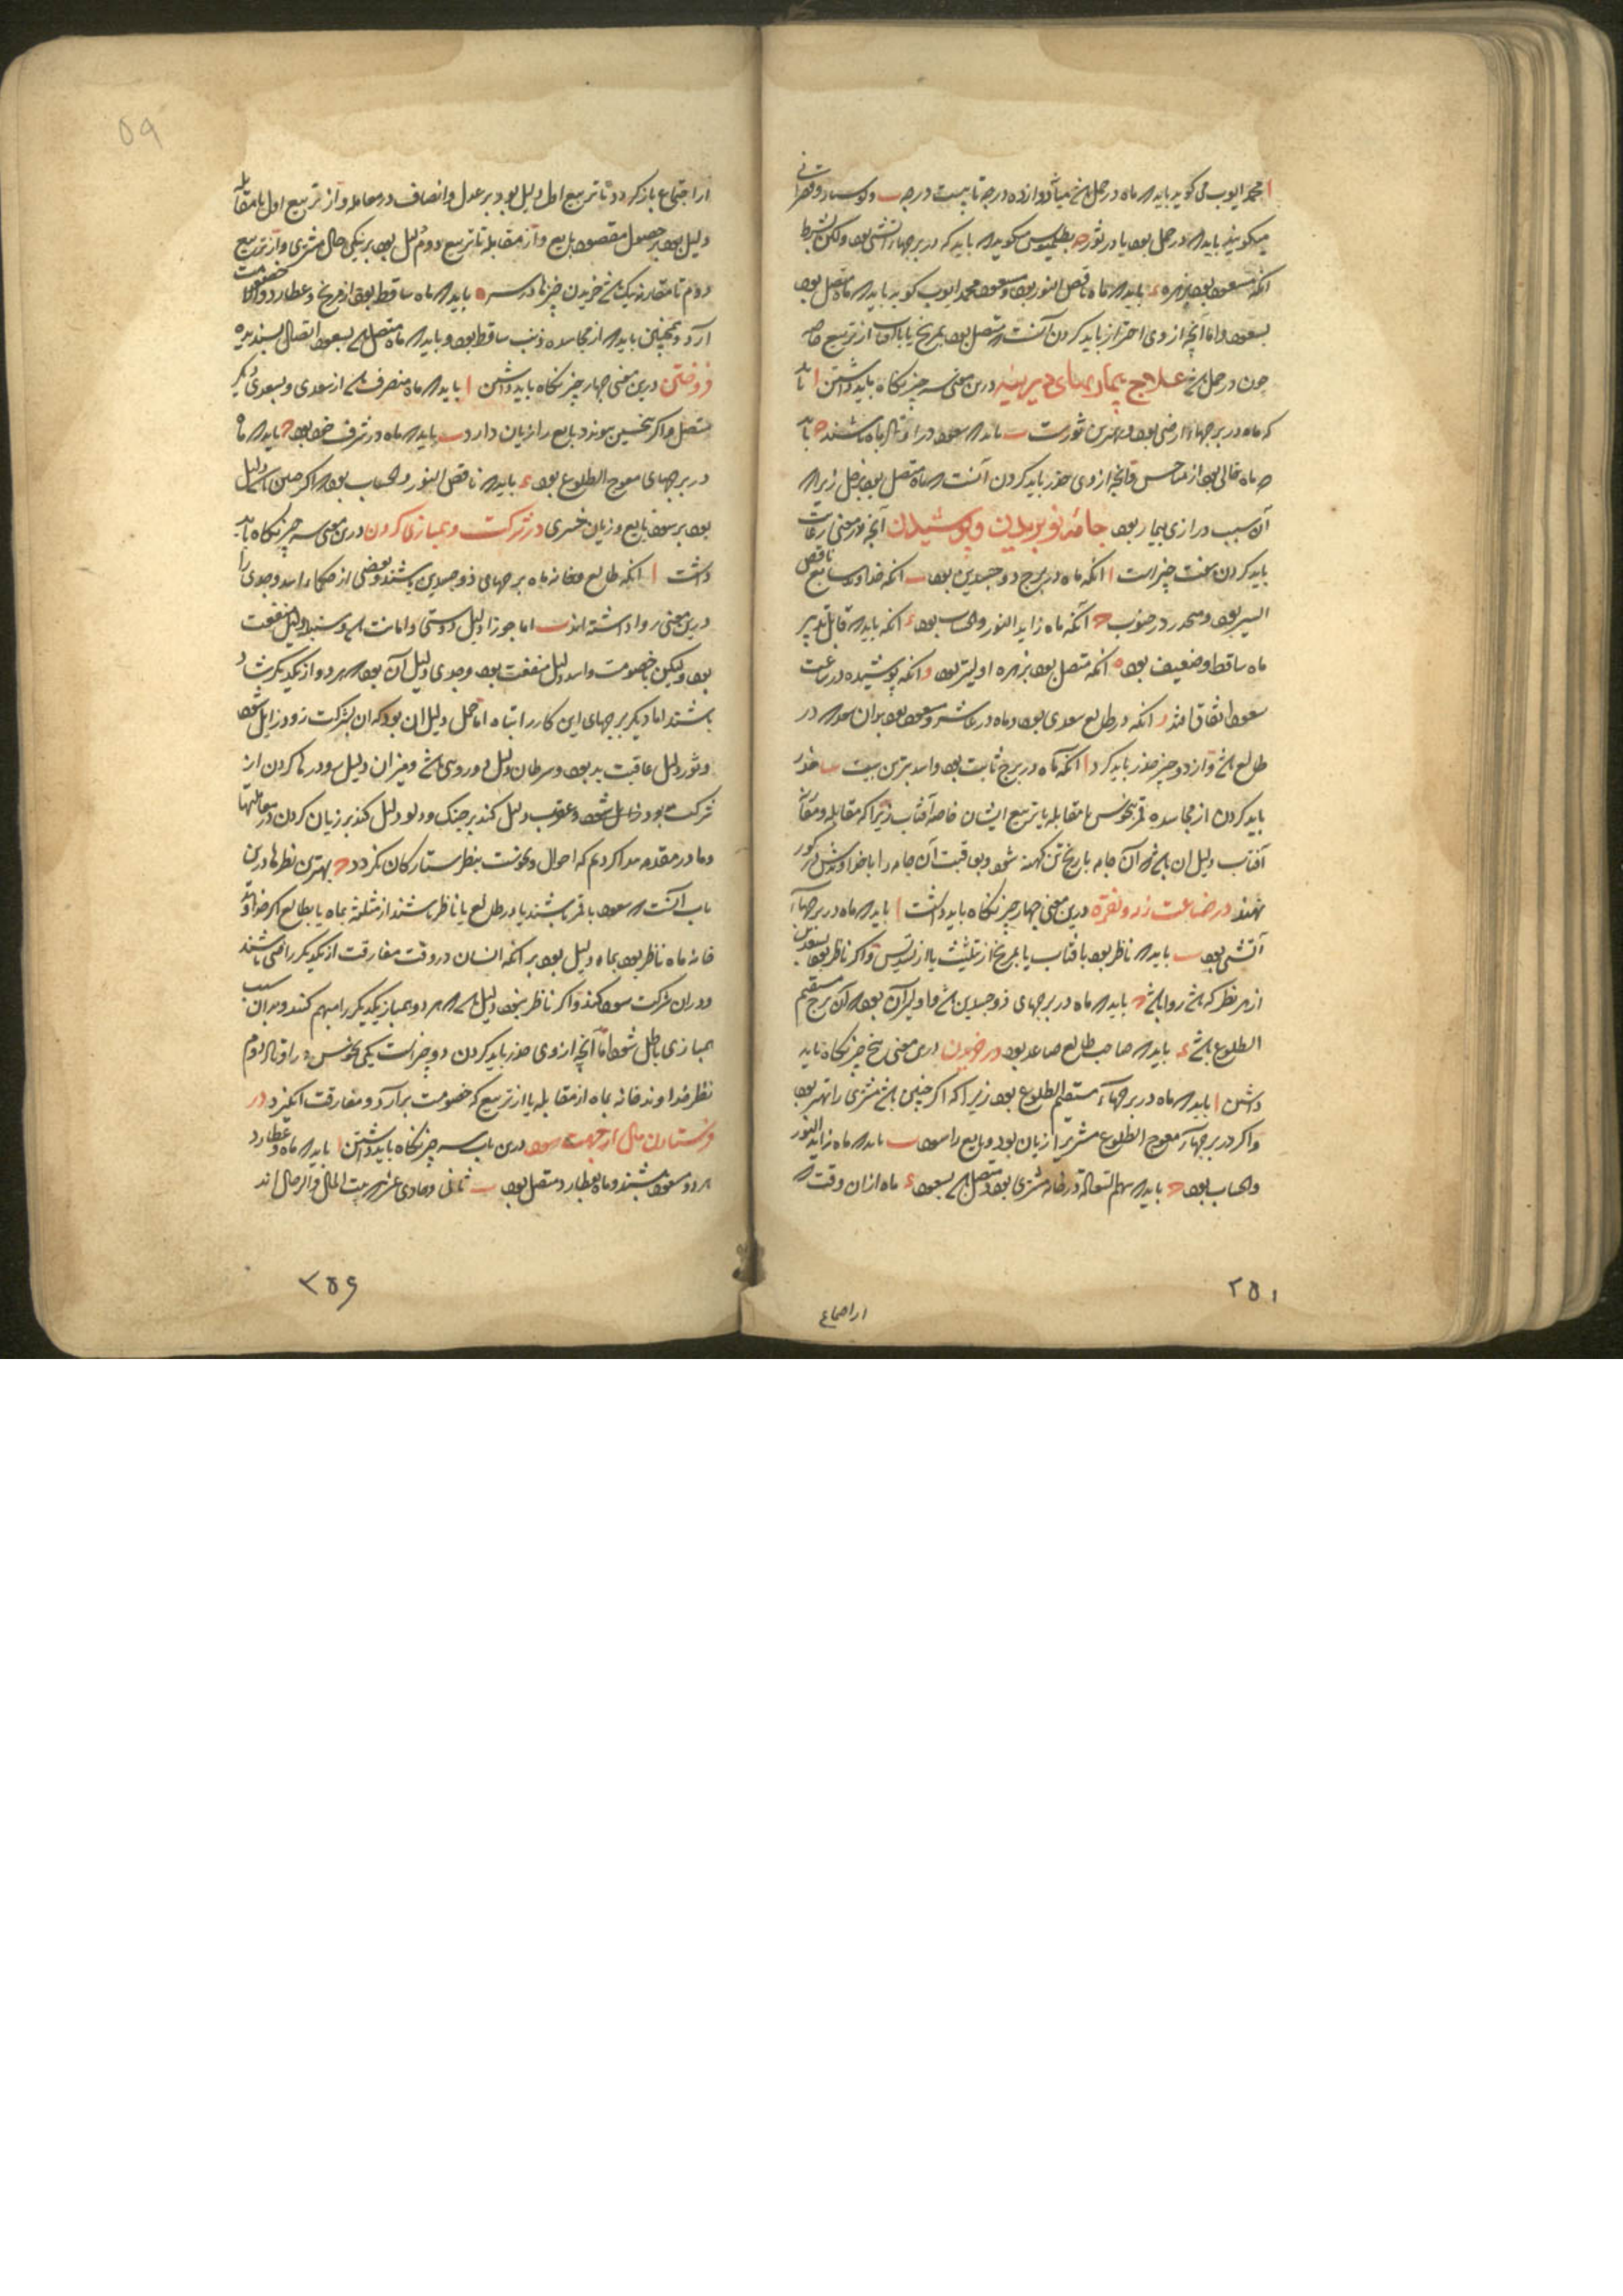 ا محمد ایوب می کوید باید که ماه در حمل باشد میان دوازده درجه تا بیست درجه ب
میکویند باید که در حمل بود یا در ثور ج بطلمیوس میکوید که باید که در برجهاء آتشی بود ولکن بشرط
آنکه مسعود بود بزهره ء باید که ماه ناقص النور بود و مسعود محمد ایوب کوید باید که ماه متصل بود
بسعود واما آنچه از وی احتراز باید کردن آنست که متصل بود بمریخ یا بآفتاب از تربیع خاصه
چون در حمل باشد علاج بیماریهای دیرینه درین معنی سه چیز نکاه باید داشتن ا باید
که ماه در برجهاء ارضی بود و بهترین ثورست ب باید که سعود در اوتاد ماه باشند ج باید
که ماه خالی بود از مناحس وآنچه از وی حذر باید کردن آنست که ماه متصل بود بزحل زیرا که
آن سبب درازی بیمار بود جامهٔ نو بریدن و پوشیدن آنچه در معنی رعایت
باید کردن هفت چیز است ا آنکه ماه در برج ذوجسدین بود ب آنکه خداوند سابع ناقص
السیر بود و منحدر در جنوب ج آنکه ماه زاید النور والحساب بود ء آنکه باید که قابل تدبیر
ماه ساقط و ضعیف بود ه آنکه متصل بود بزهره اولیتر بود و آنکه پوشیده در ساعت
سعود اتفاق افتد ز آنکه در طالع سعدی بود و ماه در عاشر و مسعود بود بدان سعد که در
طالع باشد واز دو چیز حذر باید کرد ا آنکه ماه در برج ثابت بود واسد بترین بیت ب حذر
باید کردن از مجاسده قمر بنحوس یا مقابله یا تربیع ایشان خاصه آفتاب زیرا که مقابله و مقارنه
آفتاب دلیل آن باشد که آن جامه باریخ تن کهنه شود و بعاقبت آن جامه را با خداوندش در کور
نهند در ضاعت زر و نقره درین معنی چهار چیز نکاه باید داشت ا باید که ماه در برجهاء
آتشی بود ب باید که ناظر بود بآفتاب یا بمریخ از تثلیث یا از تسدیس و اکر ناظر بود بسعدین
از هر نظر که باشد روا باشد ج باید که ماه در برجهای ذوجسدین باشد و اولیتر آن بود که آن برج مستقیم
الطلوع باشد ء باید که صاحب طالع صاعد بود در خریدن درین معنی پنج چیز نکاه باید
داشتن ا باید که ماه در برجهاء مستقیم الطلوع بود زیرا که اکر چنین باشد مشتری را بهتر بود
واکر در برجهاء معوج الطلوع مشتری را زیان بود و بایع را سود ب باید که ماه زاید النور
والحساب بود ج باید که سهم السعادة در خانه مشتری بود و متصل باشد بسعود ء ماه از آن وقت که
از اجتماع
۲۵۱
از اجتماع باز کردد تا تربیع اول دلیل بود بر عدل و انصاف در معامله واز تربیع اول تا مقابله
دلیل بود بر حصول مقصود بایع واز مقابله تا تربیع دوم دلیل بود بر نیکی حال مشتری واز تربیع
دوم تا مقارنه نیک باشد خریدن چیزها در سر ه باید که ماه ساقط بود از مریخ و عطارد والا خصومت
آرد وهمچنین باید که از مجاسده ذنب ساقط بود و باید که ماه متصل باشد بسعود اتصال پسندیده
فروختن درین معنی چهار چیز نکاه باید داشتن ا باید که ماه منصرف باشد از سعدی و بسعدی دیکر
متصل واکر بنحسین پیوندد بایع را زیان دارد ب باید که ماه در شرف خود بود ج باید که ماه
در برجهای معوج الطلوع بود ء باید که ناقص النور والحساب بود که اکر چنین باشد دلیل
بود بر سود بایع و زیان مشتری در شرکت و همبازی کردن درین معنی سه چیز نکاه باید
داشت ا آنکه طالع و خانه ماه برجهای ذوجسدین باشند و بعضی از حکما اسد و جدی را
درین معنی روا داشته اند ب اما جوزا دلیل دوستی و امانت باشد و سنبله دلیل منفعت
بود ولیکن باخصومت واسد دلیل منفعت بود و جدی دلیل آن بود که هر دو از یکدیکر شاد
باشند اما دیکر برجهای این کار را تباه اما حمل دلیل آن بود که آن شرکت زود زایل شود
وثور دلیل عاقبت بد بود وسرطان دلیل دوروئی باشد ومیزان دلیل سود رها کردن از
شرکت بود وعقرب دلیل کند بر جنک ودلو دلیل کند بر زیان کردن در معاملتها
وما در مقدمه یاد کردیم که احوال ونحوست بنظر ستارکان بکردد ج بهترین نظرها درین
باب آنست که سعود با قمر باشند یا در طالع یا ناظر باشند از مثلثه بماه یا بطالع اکر خداوند
خانه ماه ناظر بود بماه دلیل بود بر آنکه انسان در وقت مفارقت از یکدیکر راضی باشند
ودر آن شرکت سود کنند واکر ناظر نبود دلیل باشد که هر دو همباز یکدیکر را متهم کنند وبدان سبب
همبازی باطل شود اما آنچه از وی حذر باید کردن دو چیز است یکی نحوس در اوتاد دوم
نظر خداوند خانه بماه از مقابله یا از تربیع که خصومت بر آرد و مفارقت انکیزد در
فرستادن مال از جهت سود درین باب سه چیز نکاه باید داشتن ا باید که ماه و عطارد
هر دو مسعود باشند و ماه بعطارد متصل بود ب ثانی وحادی عشر که بیت المال
۲۵۶
۵۹